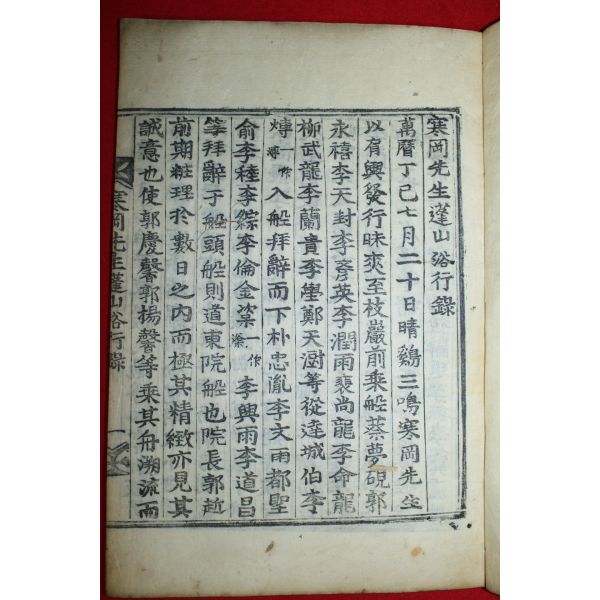 寒岡先生蓬山浴行錄
萬曆丁巳七月二十日晴鷄三鳴寒岡先生
以肩輿發行昧爽至枝巖前乘船蔡夢硯郭
永禧李天封李彦英李潤雨裵尚龍李命龍
柳武龍李蘭貴李𡒉鄭天澍等從達城伯李
煿一作入船拜辭而下朴忠胤李文雨都聖
俞李稑李綜李倫金㵛一作李興雨李道昌
等拜辭于船頭船則道東院船也院長郭赾
前期粧理於數日之內而極其精緻亦見其
誠意也使郭慶馨郭揚馨等乘其舟溯流而
寒岡先生蓬山浴行錄
一